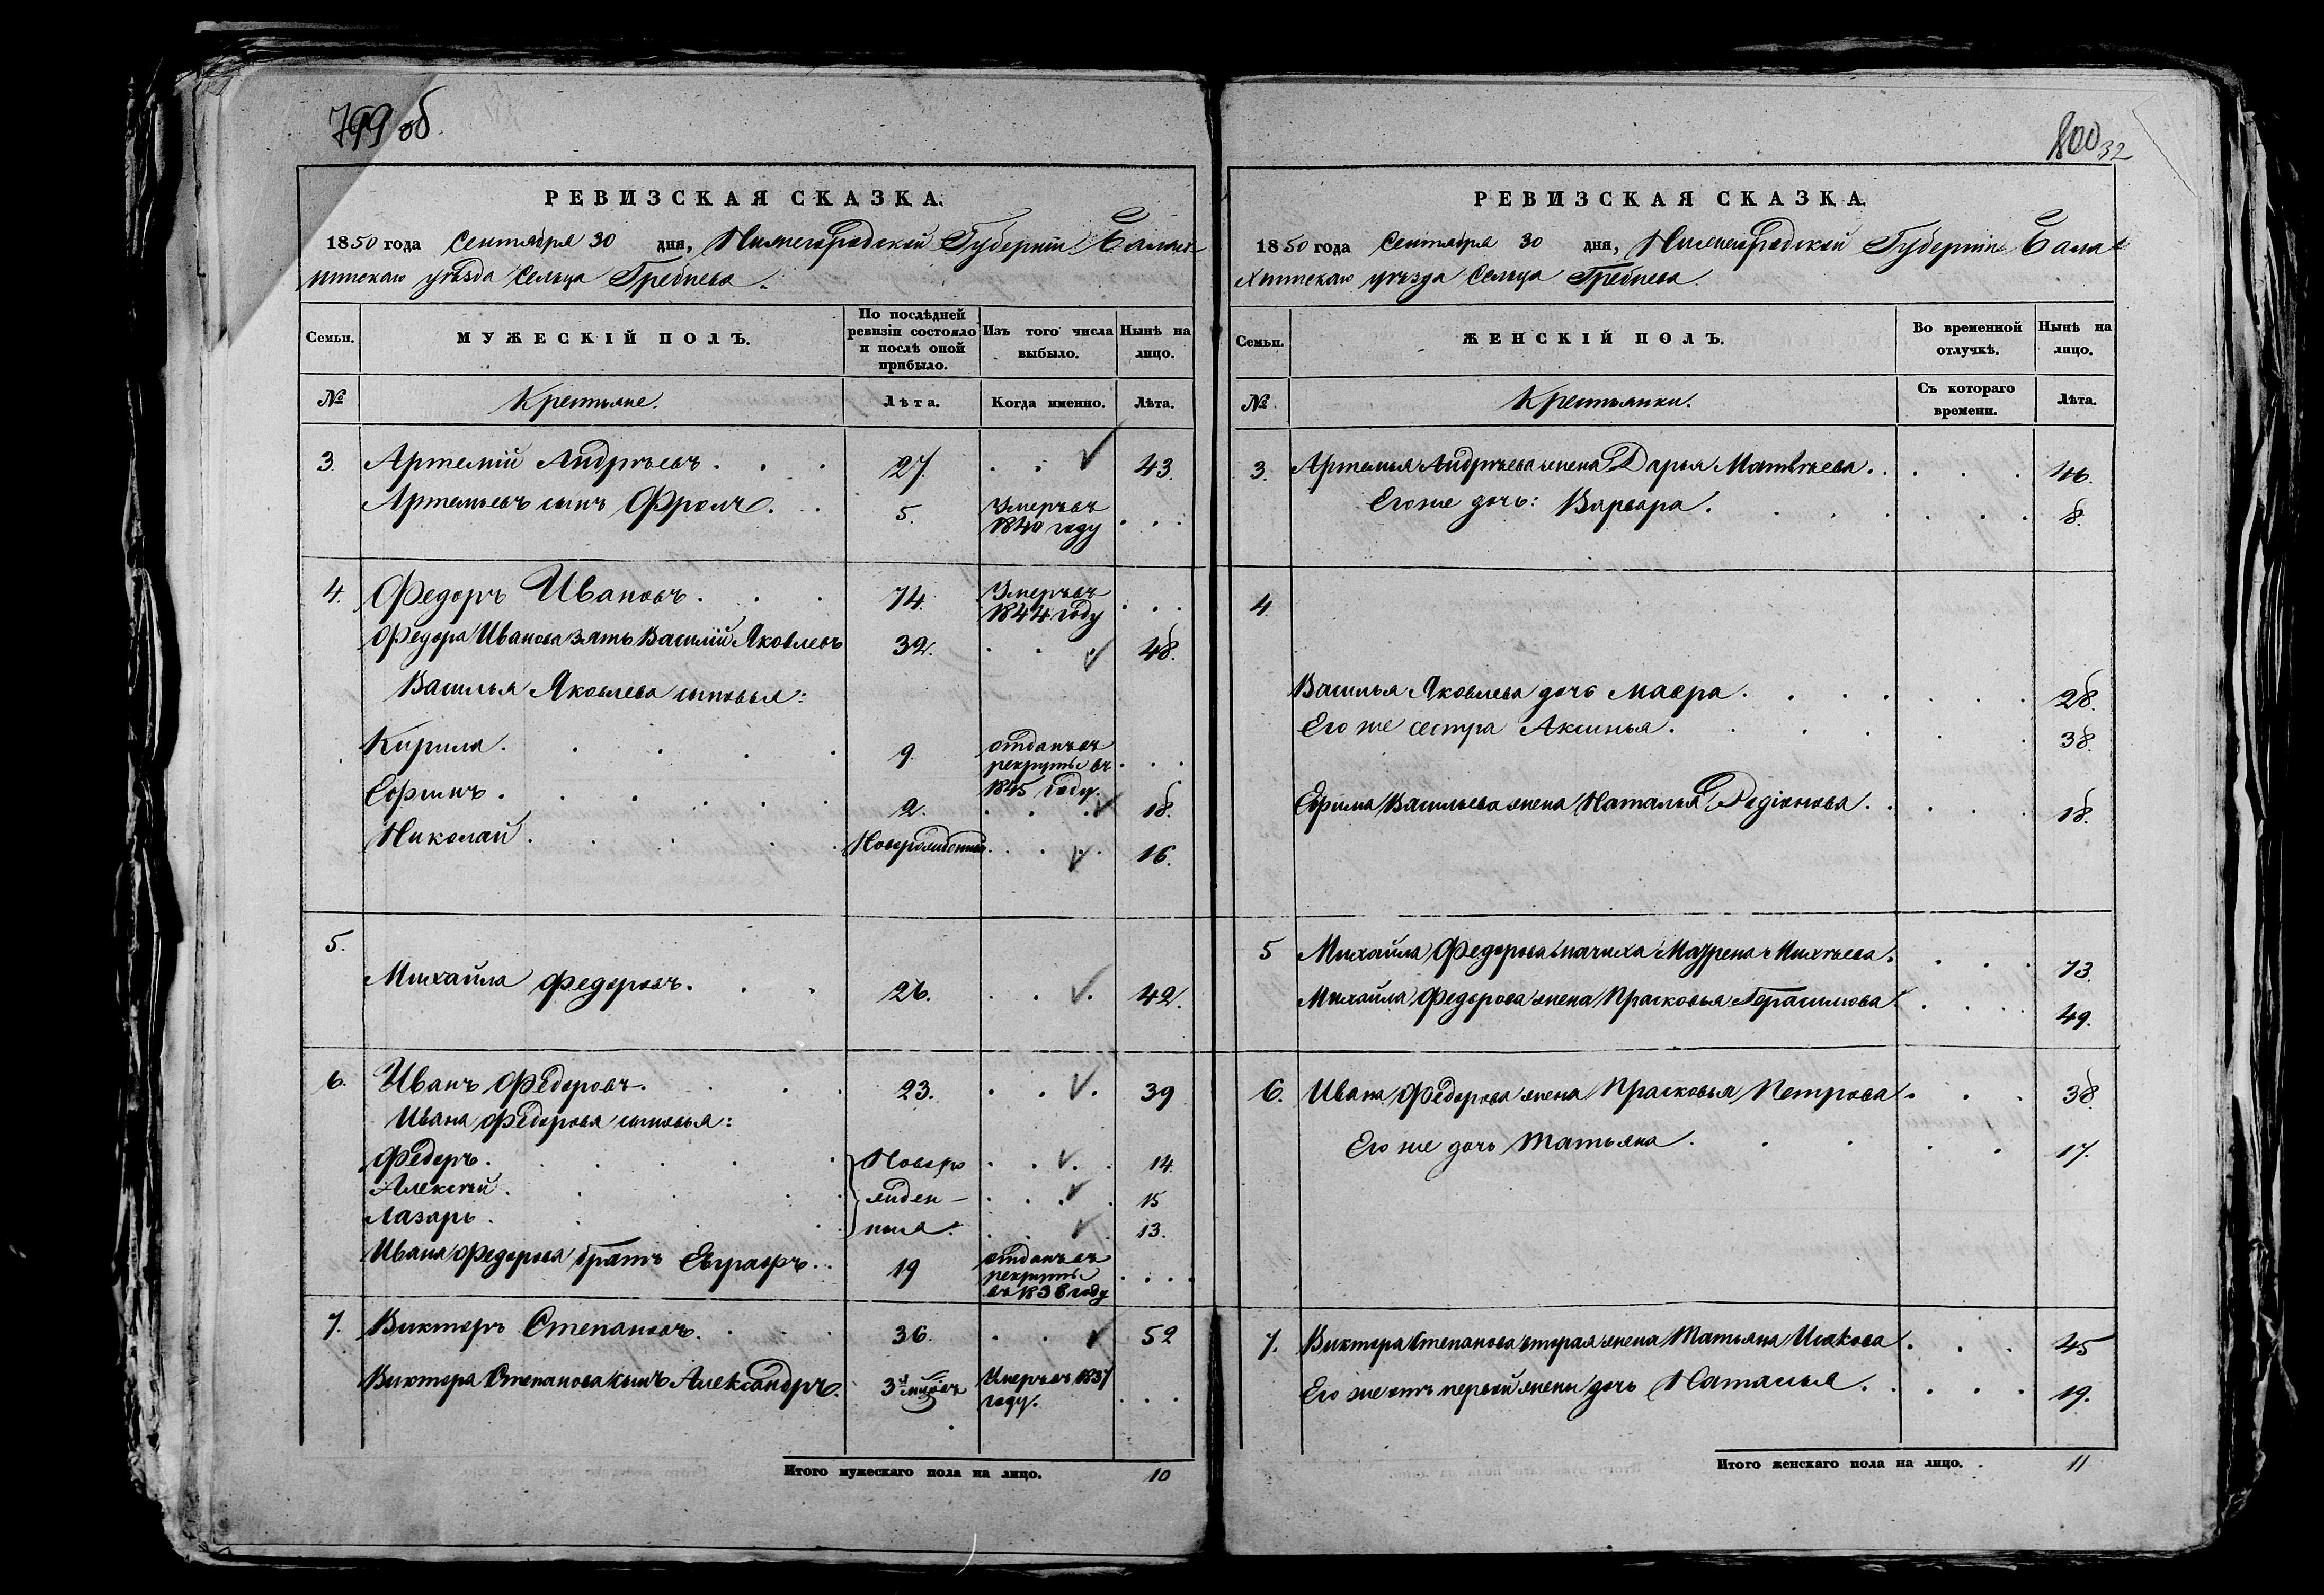 799 об.
РЕВИЗСКАЯ СКАЗКА.
1850 года Сентября 30 дня, Нижегородской Губернии Балах
нинскаго уѣзда Сельца Гребнева.
Семьи. МУЖЕСКІЙ ПОЛЪ. По послѣдней ревизіи состояло и послѣ оной прибыло. Изъ того числа выбыло. Нынѣ на лицо.
№ Крестьяне. Лѣта. Когда именно. Лѣта.
3. Артемій Андреѣевъ . . . 27. . . 43.
Артемьевъ сынъ Фролъ . . 5. Умеръ въ 1840 году . . .
4. Федоръ Ивановъ . . . 74. Умеръ въ 1844 году . . .
Федора Иванова зять Василій Яковлевъ 32. . . . 48.
Василья Яковлева сыновья:
Кирила . . . . . 9. отданъ въ рекруты въ 1845 году. . . .
Ефимъ . . . . . . 2. . . . 18.
Николай . . . . . Новорожденный . . . . 16.
5.
Михайла Федоровъ . . . 26. . . . 42.
6. Иванъ Федоровъ . . . 23. . . . 39
Ивана Федорова сыновья:
Федоръ . . . . . Новоро . . . 14.
Алексѣй . . . . . жден- . . . 15
Лазарь . . . . . ные. . . 13.
Ивана Федорова братъ Евграфъ . . 19 отданъ въ рекруты въ 1836 году . . . .
7. Викторъ Степановъ . . . . 36. . . 52
Виктора Степанова сынъ Александръ. 3х мцовъ Умеръ въ 1837 году. . . .
Итого мужескаго пола на лицо. 10
800
32
РЕВИЗСКАЯ СКАЗКА.
1850 года Сентября 30 дня, Нижегородской Губерніи Бала
хнинскаго уѣзда Сельца Гребнева.
Семьи. ЖЕНСКІЙ ПОЛЪ. Во временной отлучкѣ. Нынѣ на лицо.
№. Крестьянки. Съ котораго времени. Лѣта.
3. Артемья Андрѣева жена Дарья Матвѣева . . . . 46.
Его же дочь: Варвара . . . . . . . 8.
4
Василья Яковлева дочь Мавра . . . . . . . 28.
Его же сестра Аксинья . . . . . . 38.
Ефима Васильева жена Наталья Родіонова . . . . 18.
5 Михайла Федорова мачиха Матрена Михѣева . . . . 73.
Михайла Федорова жена Прасковья Герасимова . . . . 49.
6. Ивана Федорова жена Прасковья Петрова . . . 38.
Его же дочь Татьяна . . . . . 17.
7. Виктора Степанова вторая жена Татьяна Исакова . . . 45
Его же отъ первой жены дочь Наталья . . . . . 19.
Итого женскаго пола на лицо. 11